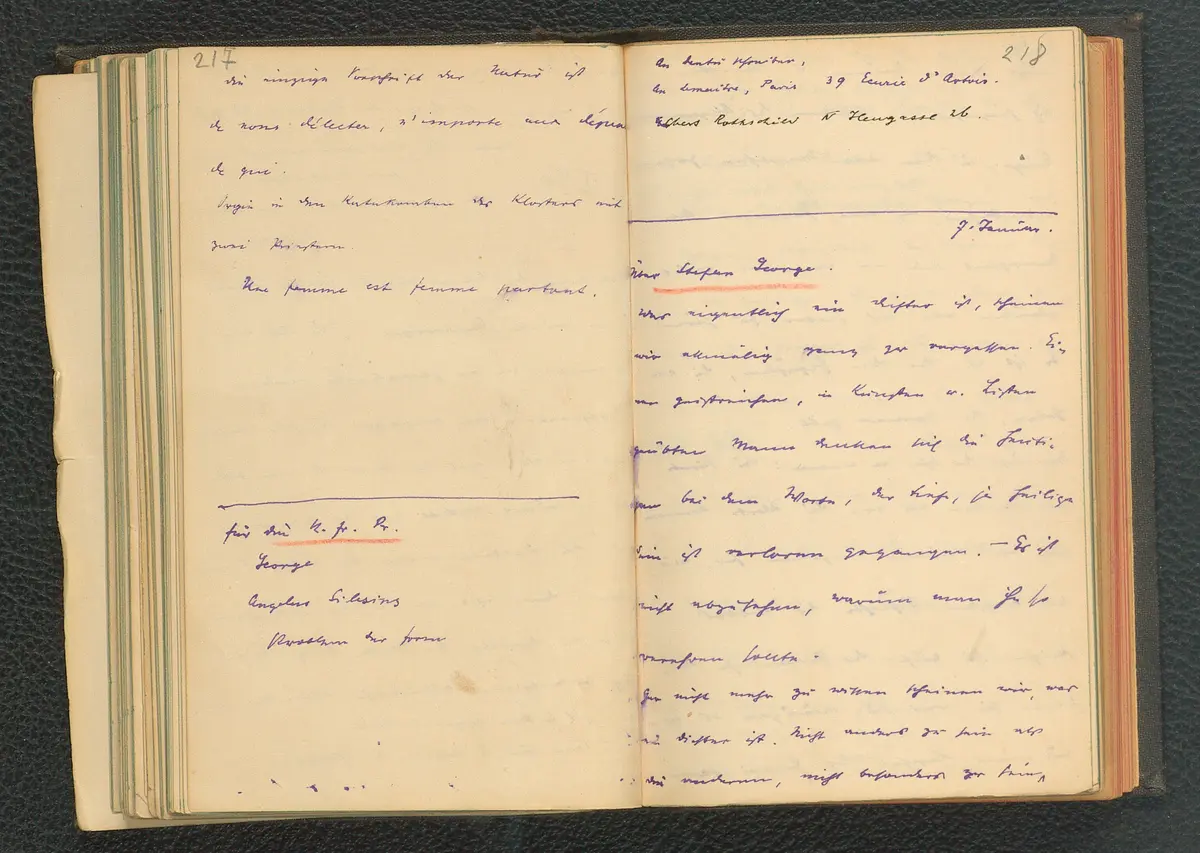 217
die einzige Vorschrift der Natur ist
de nous délecter, n'importe aux dépens
de qui.
Orgie in den Katakomben des Klosters mit
zwei Priestern.
Une femme est femme partout.
für die N. fr. Pr.
George
Angelus Silesius
Problem der Form
218
An
An Lemaitre, Paris 39 Ecurie d'Artois.
Albert Rothschild IV Heugasse 26.
7. Januar.
Über Stefan George.
Was eigentlich ein Dichter ist, scheinen
wir allmälig ganz zu vergessen. Ei-
nen geistreichen, in Künsten u. Listen
geübten Mann denken sich die Heuti-
gen bei dem Worte, der tiefe, ja heilige
Sinn ist verloren gegangen. – Es ist
nicht abzusehen, warum man ihn so
verehren sollte.
Gar nicht mehr zu wissen scheinen wir, was
ein Dichter ist. Nicht anders zu sein als
die anderen, nicht besonders zu sein,